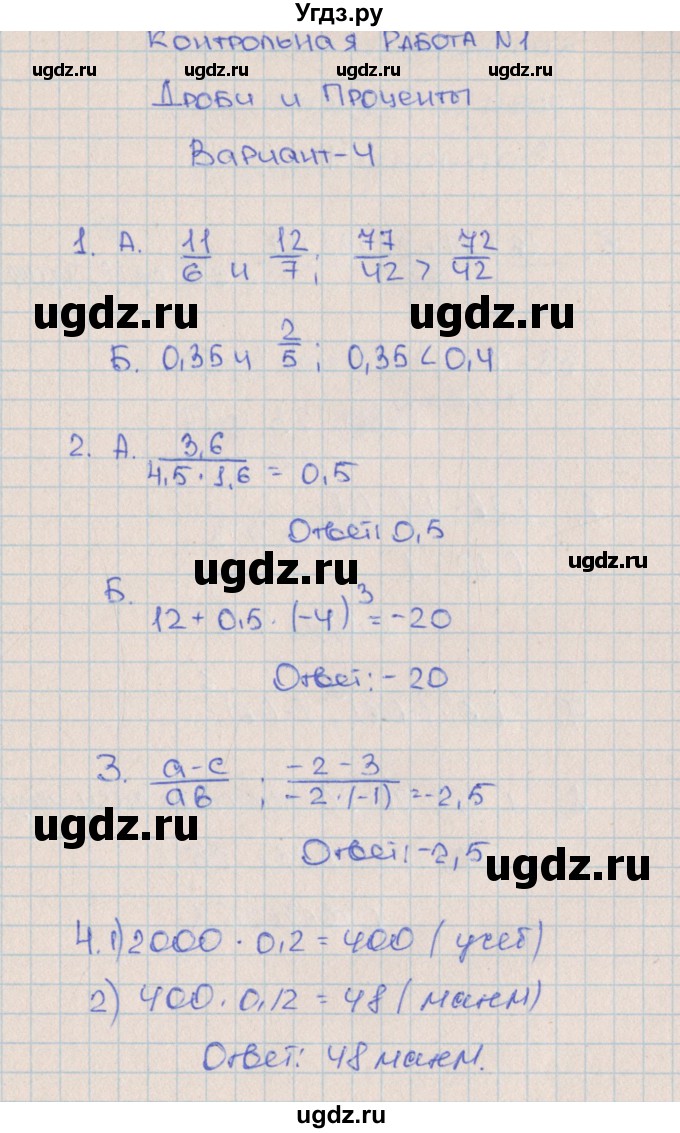 Угдз.ру
Контрольная работа №1
ugdz.ru ugdz.ru ugdz.ru
Дроби и Проценты
Вариант-4
1. А. 11/6 и 12/7; 77/42 > 72/42
ugdz.ru ugdz.ru
Б. 0,35 и 2/5; 0,35 < 0,4
2. А. 3,6/(4,5 · 1,6) = 0,5
Ответ: 0,5
ugdz.ru ugdz.ru
Б. 12 + 0,5 · (-4)³ = -20
Ответ: -20
3. (a-c)/(aв); (-2-3)/(-2·(-1)) = -2,5
ugdz.ru
Ответ: -2,5
ugdz.ru
4. 1) 2000 · 0,2 = 400 (учеб)
2) 400 · 0,12 = 48 (манм)
Ответ: 48 манм.
ugdz.ru